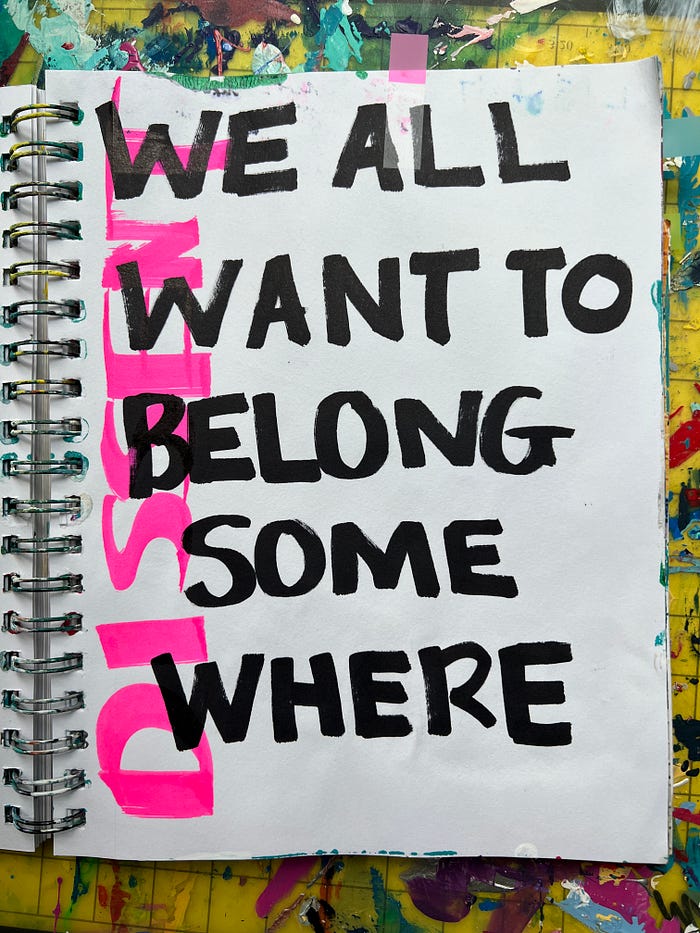 WE ALL
WANT TO
BELONG
SOME
WHERE
DISSENT